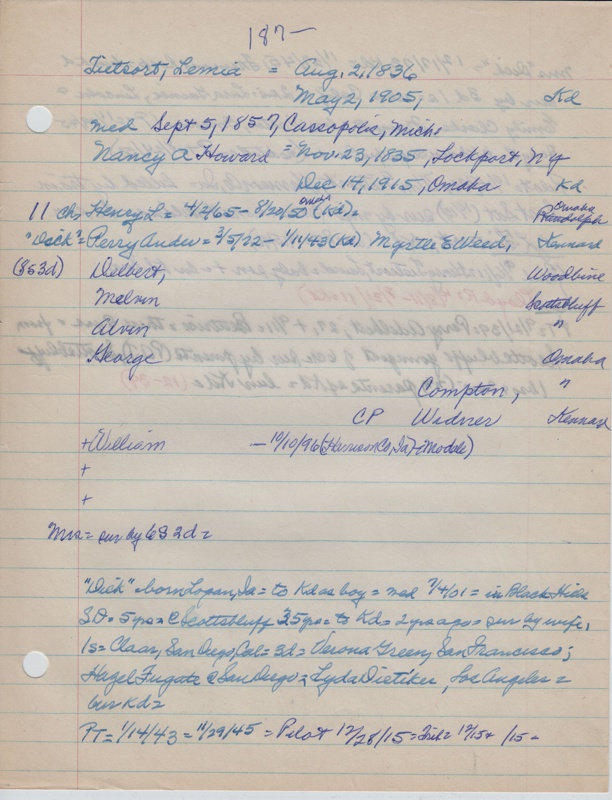 187—
Tietsort, Lemia = Aug. 2, 1836
May 2, 1905, Kd
med Sept 5, 1857, Cassopolis, Mich.
Nancy A Howard = Nov. 23, 1835, Lockport, NY
Dec 14, 1915, Omaha Kd
11 ch, Henry L = 4/2/65 - 8/20/50 (Kd) = Omaha
"Dick" = Perry Ander = 3/5/22 - 1/11/43 (Kd) Myrtle E Weed, Kennard
(8S3d) Delbert, Woodbine
Melvin Scottsbluff
Alvin "
George Omaha
Compton, "
CP Widner Kennard
+William — 10/10/96 (Harrison Co, Ia)
+
+
Mrs = sur by 6S 2d =
"Dick" = born Logan, Ia = to Kd as boy = med 7/4/01 = in Black Hills
S.D. = 5 yrs = @ Scottsbluff 35 yrs = to Kd = 2 yrs ago = sur by wife,
1s = Claar, San Diego, Cal = 3d = Verona Green, San Francisco;
Hazel Fugate @ San Diego = Lyda Dietiker, Los Angeles =
bur Kd =
PT = 1/14/43 = 11/29/45 = Pilot 12/28/15 = 12/15+ /15 -